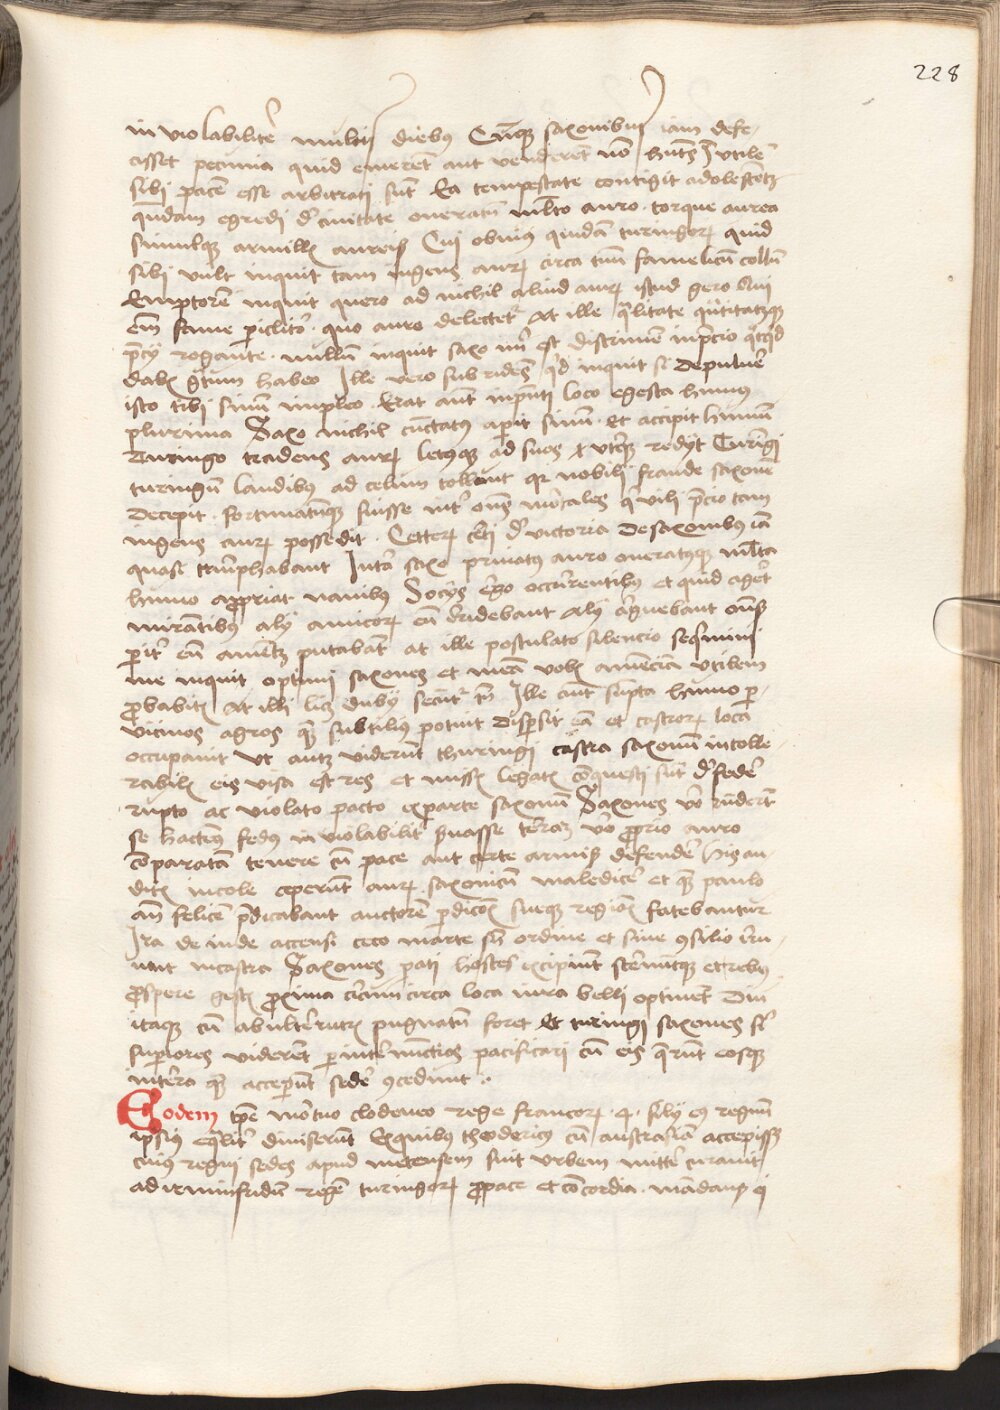 228
in violabiliter multis diebus Cumque saxonibus iam defe-
cisset pecunia quid emerent aut venderent non habentes Inutilem
sibi pacem esse arbitrati sunt Ea tempestate contigit adolescentem
quendam egredi de civitate oneratum multo auro torque aurea
simulque armillis aureis Cui obvius quidam turingorum quid
sibi vult inquit tam ingens aurum circa tuum famelicum collum
Emptorem inquit quero ad nichil aliud aurum istud gero Qui
enim fame periclitor quo auro delecter At ille qualitate quantitateque
precii rogante nullum inquit saxo mihi est discrimen in precio quicquid
dabis gratum habeo Ille vero subridens quid inquit si de pulvere
isto tibi sinum impleo Erat autem in presenti loco egesta humus
plurima Saxo nichil cunctatus aperit sinum et accipit humum
Turingo tradens aurum letusque ad suos uterque rediit Turingi
turingum laudibus ad celum tollunt qui nobili fraude saxonem
decepit fortunatumque fuisse inter omnes mortales qui vili precio tam
ingens aurum possedit Ceterum certi de victoria de saxonibus iam
quasi triumphabant Interea saxo privatus auro oneratusque multa
humo appropriat navibus Sociis ergo occurrentibus et quid ageret
mirantibus alii amicorum eum deridebant alii arguebant omnes
pariter eum amentem putabant at ille postulato silencio sequimini
me inquit optimi saxones et meam vobis amenciam utilem
probabitis At illi licet dubii secuntur tamen Ille autem sumpta humo per
vicinos agros quam subtilius potuit dispersit eam et castrorum loca
occupavit Ut autem viderunt thuringi castra saxonum intolle-
rabilis eis visa est res et missis legatis conquesti sunt de federe
rupto ac violato pacto ex parte saxonum Saxones vero responderunt
se hactenus fedus inviolabiliter servasse terram vero proprio auro
comparatam tenere cum pace aut certe armis defendere His au-
ditis incole ceperunt aurum saxonicum maledicere et quem paulo
ante felicem predicabant auctorem perdicionis sueque regionis fatebantur
Ira deinde accensi ceco marte sine ordine et sine consilio irru-
unt in castra Saxones parati hostes excipiunt sternuntque et rebus
prospere gestis proxima circum circa loca iura belli optinent Diu
itaque cum ab alterutris pugnatum foret et turingi saxones sibi
superiores viderent per internuncios pacificari cum eis querunt eosque
in terra quam acceperunt sedere concedunt
Eodem tempore mortuo clodoveo rege francorum 4 filii eius regnum
ipsius equaliter diviserunt Ex quibus theodericus cum austrasiam accepisset
cuius regni sedes apud metensem fuit urbem mittere curavit
ad irminfridum regem turingorum pro pace et concordia mandans ei